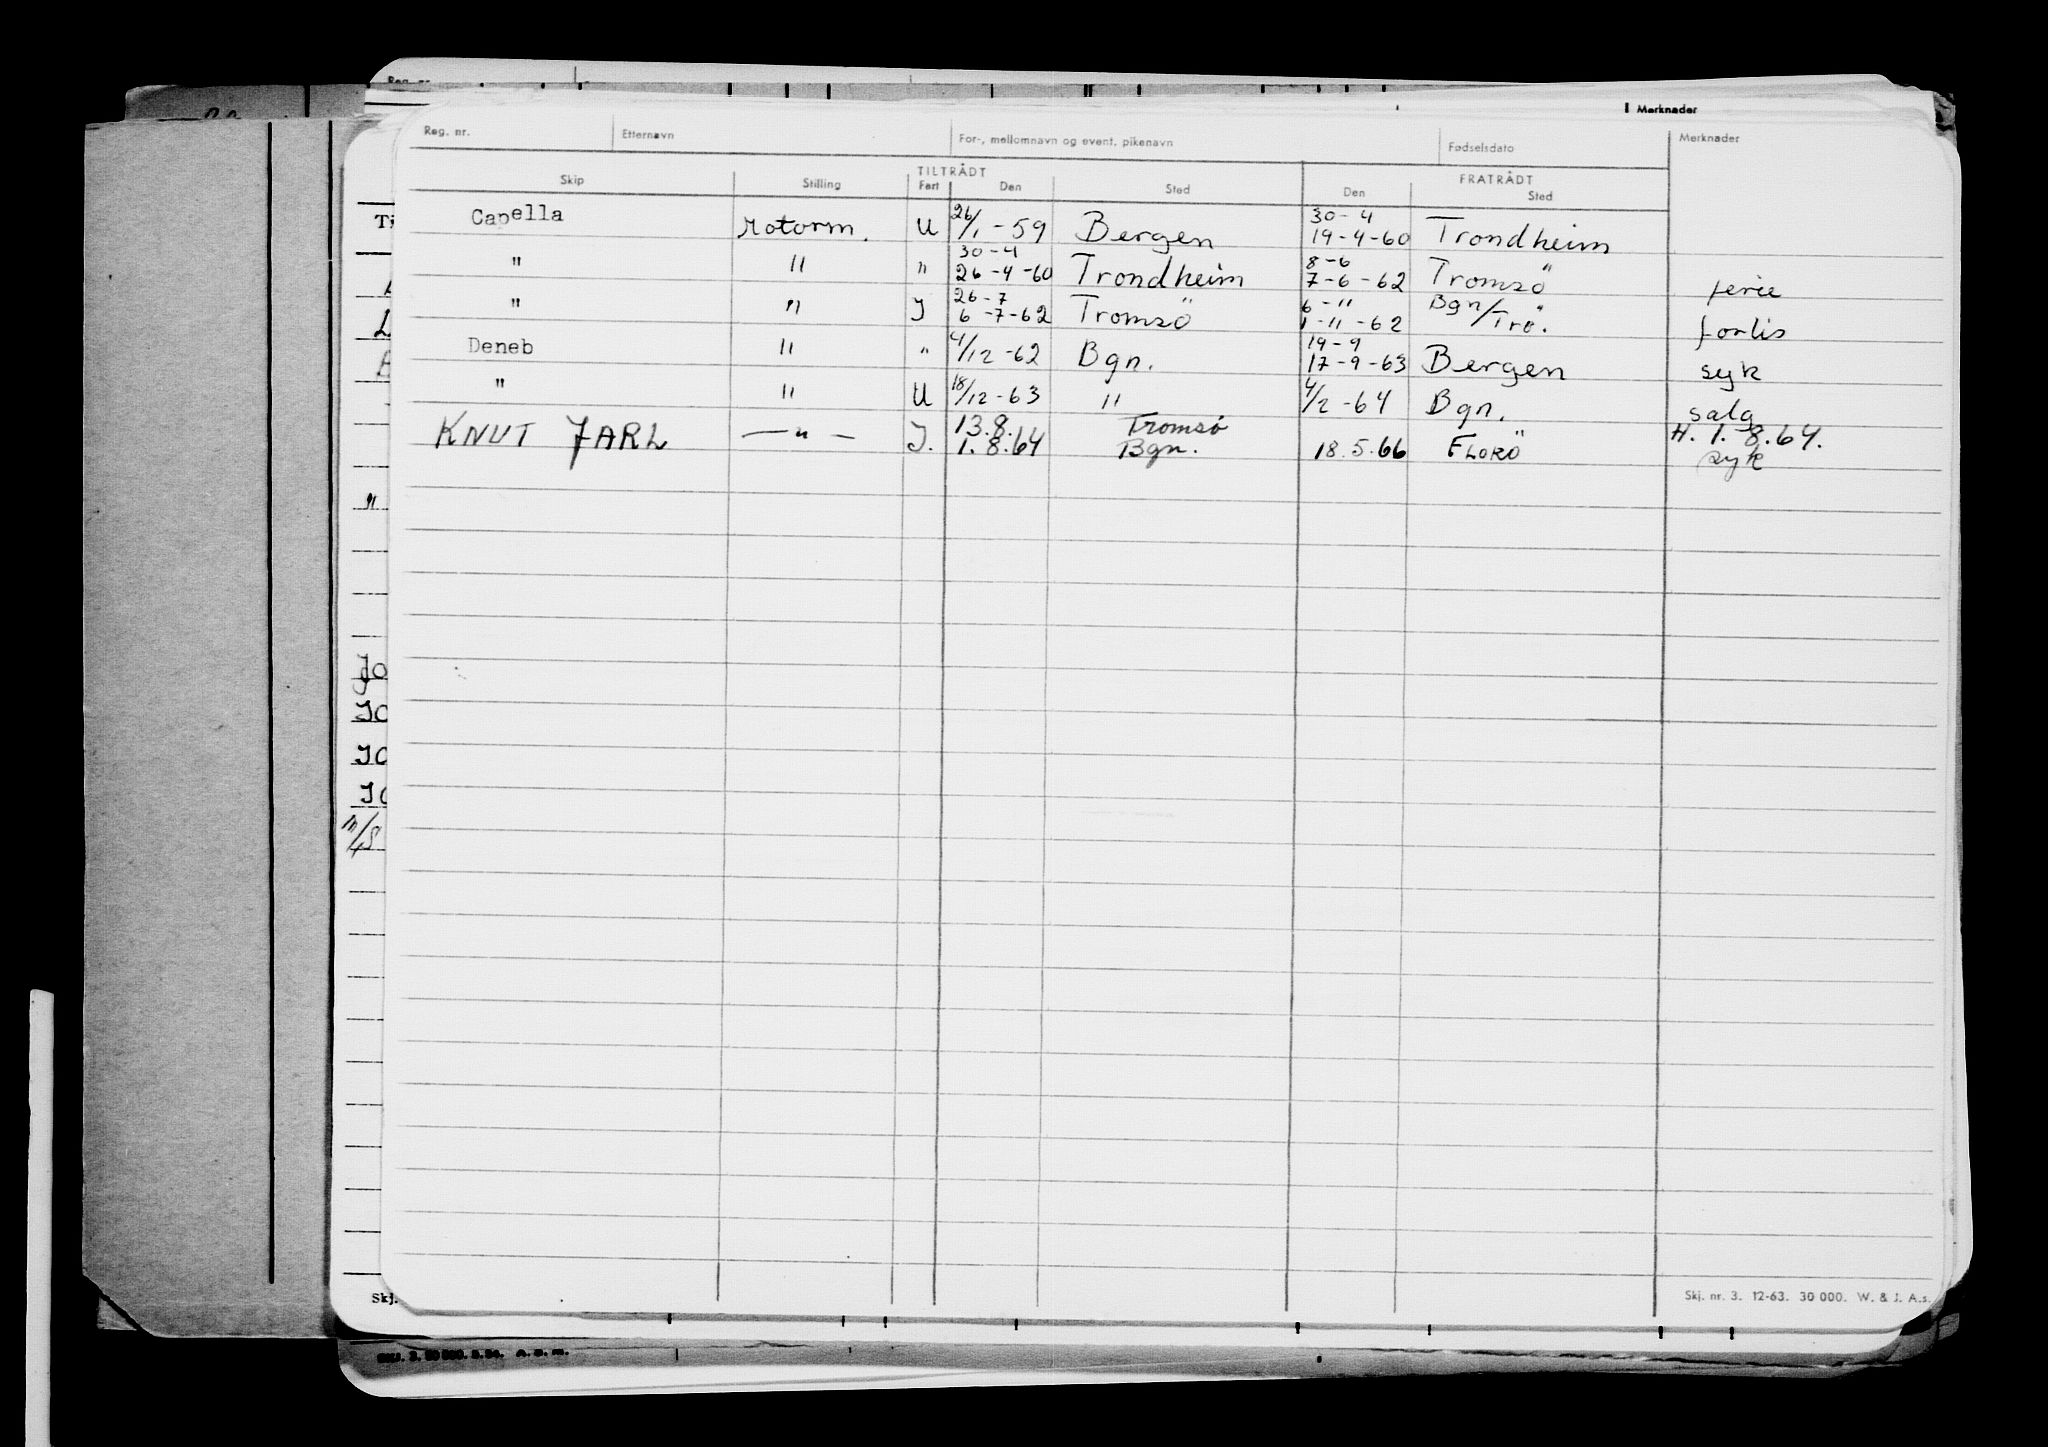 Merknader
Reg. nr. Etternavn For-, mellomnavn og event. pikenavn Fødselsdato Merknader
TILTRÅDT FRATRÅDT
Skip Stilling Fart Den Sted Den Sted
26/1 30-4
Capella Motorm. U -59 Bergen 19-4-60 Trondheim
30-4 8-6
" " " 26-4-60 Trondheim 7-6-62 Tromsö ferie
26-7 6-11
" " J 6-7-62 Tromsö 1-11-62 Bgn/Trö. forlis
19-9
Deneb " " 4/12-62 Bgn. 17-9-63 Bergen syk
" " U 18/12-63 " 4/2-64 Bgn. salg
13.8. Tromsö H. 1.8.64.
KNUT JARL —"— J. 1.8.64 Bgn. 18.5.66 FLORÖ syk
Skj. nr. 3. 12-63. 30 000. W. & J. A.s.
Skj.